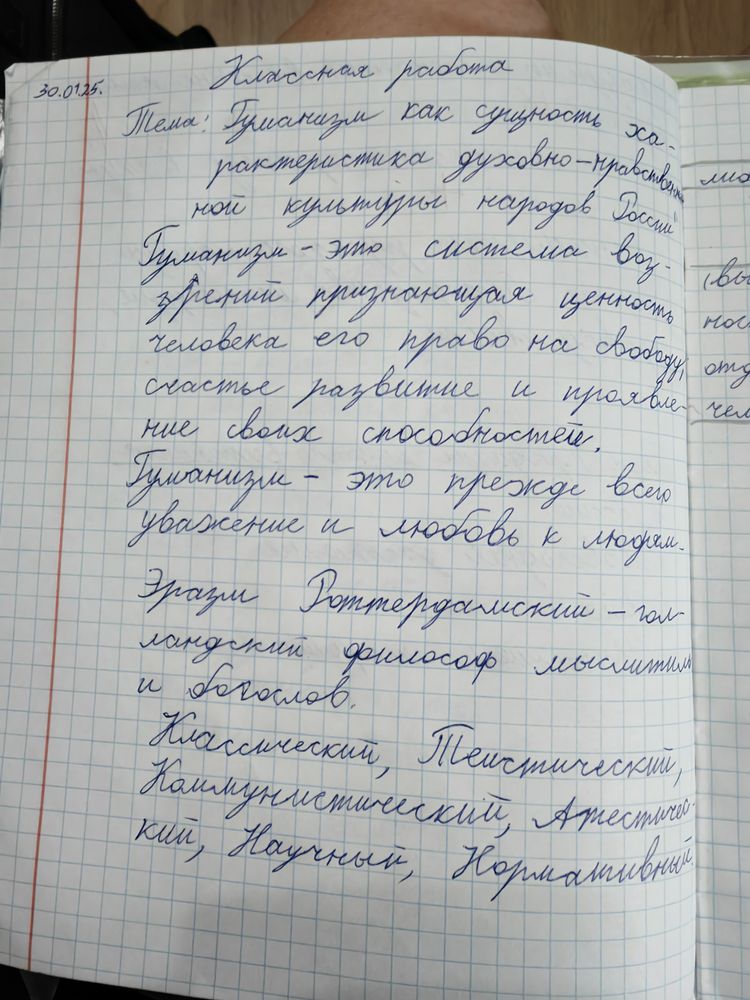 30.01.25.
Классная работа
Тема: Гуманизм как сущность ха-
рактеристика духовно-нравствен
ной культуры народов России
Гуманизм - это система воз-
зрений признающая ценность
человека его право на свободу,
счастье развитие и проявле-
ние своих способностей.
Гуманизм - это прежде всего
уважение и любовь к людям.
Эразм Роттердамский - гол-
ландский философ мыслитиль
и богослов.
Классический, Теистический,
Коммунистический, Атестичес-
кий, Научный, Нормативный.